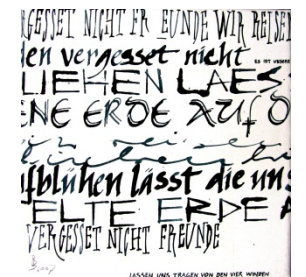 RGESSET NICHT FR EUNDE WIR REISEN
den vergesset nicht
ES IST UNSERE
LIEHEN LAES
ENE ERDE AUf D
fblühen lässt die uns
ELTE ERDE A
VERGESSET NICHT FREUNDE
LASSEN UNS TRAGEN VON DEN VIER WINDEN